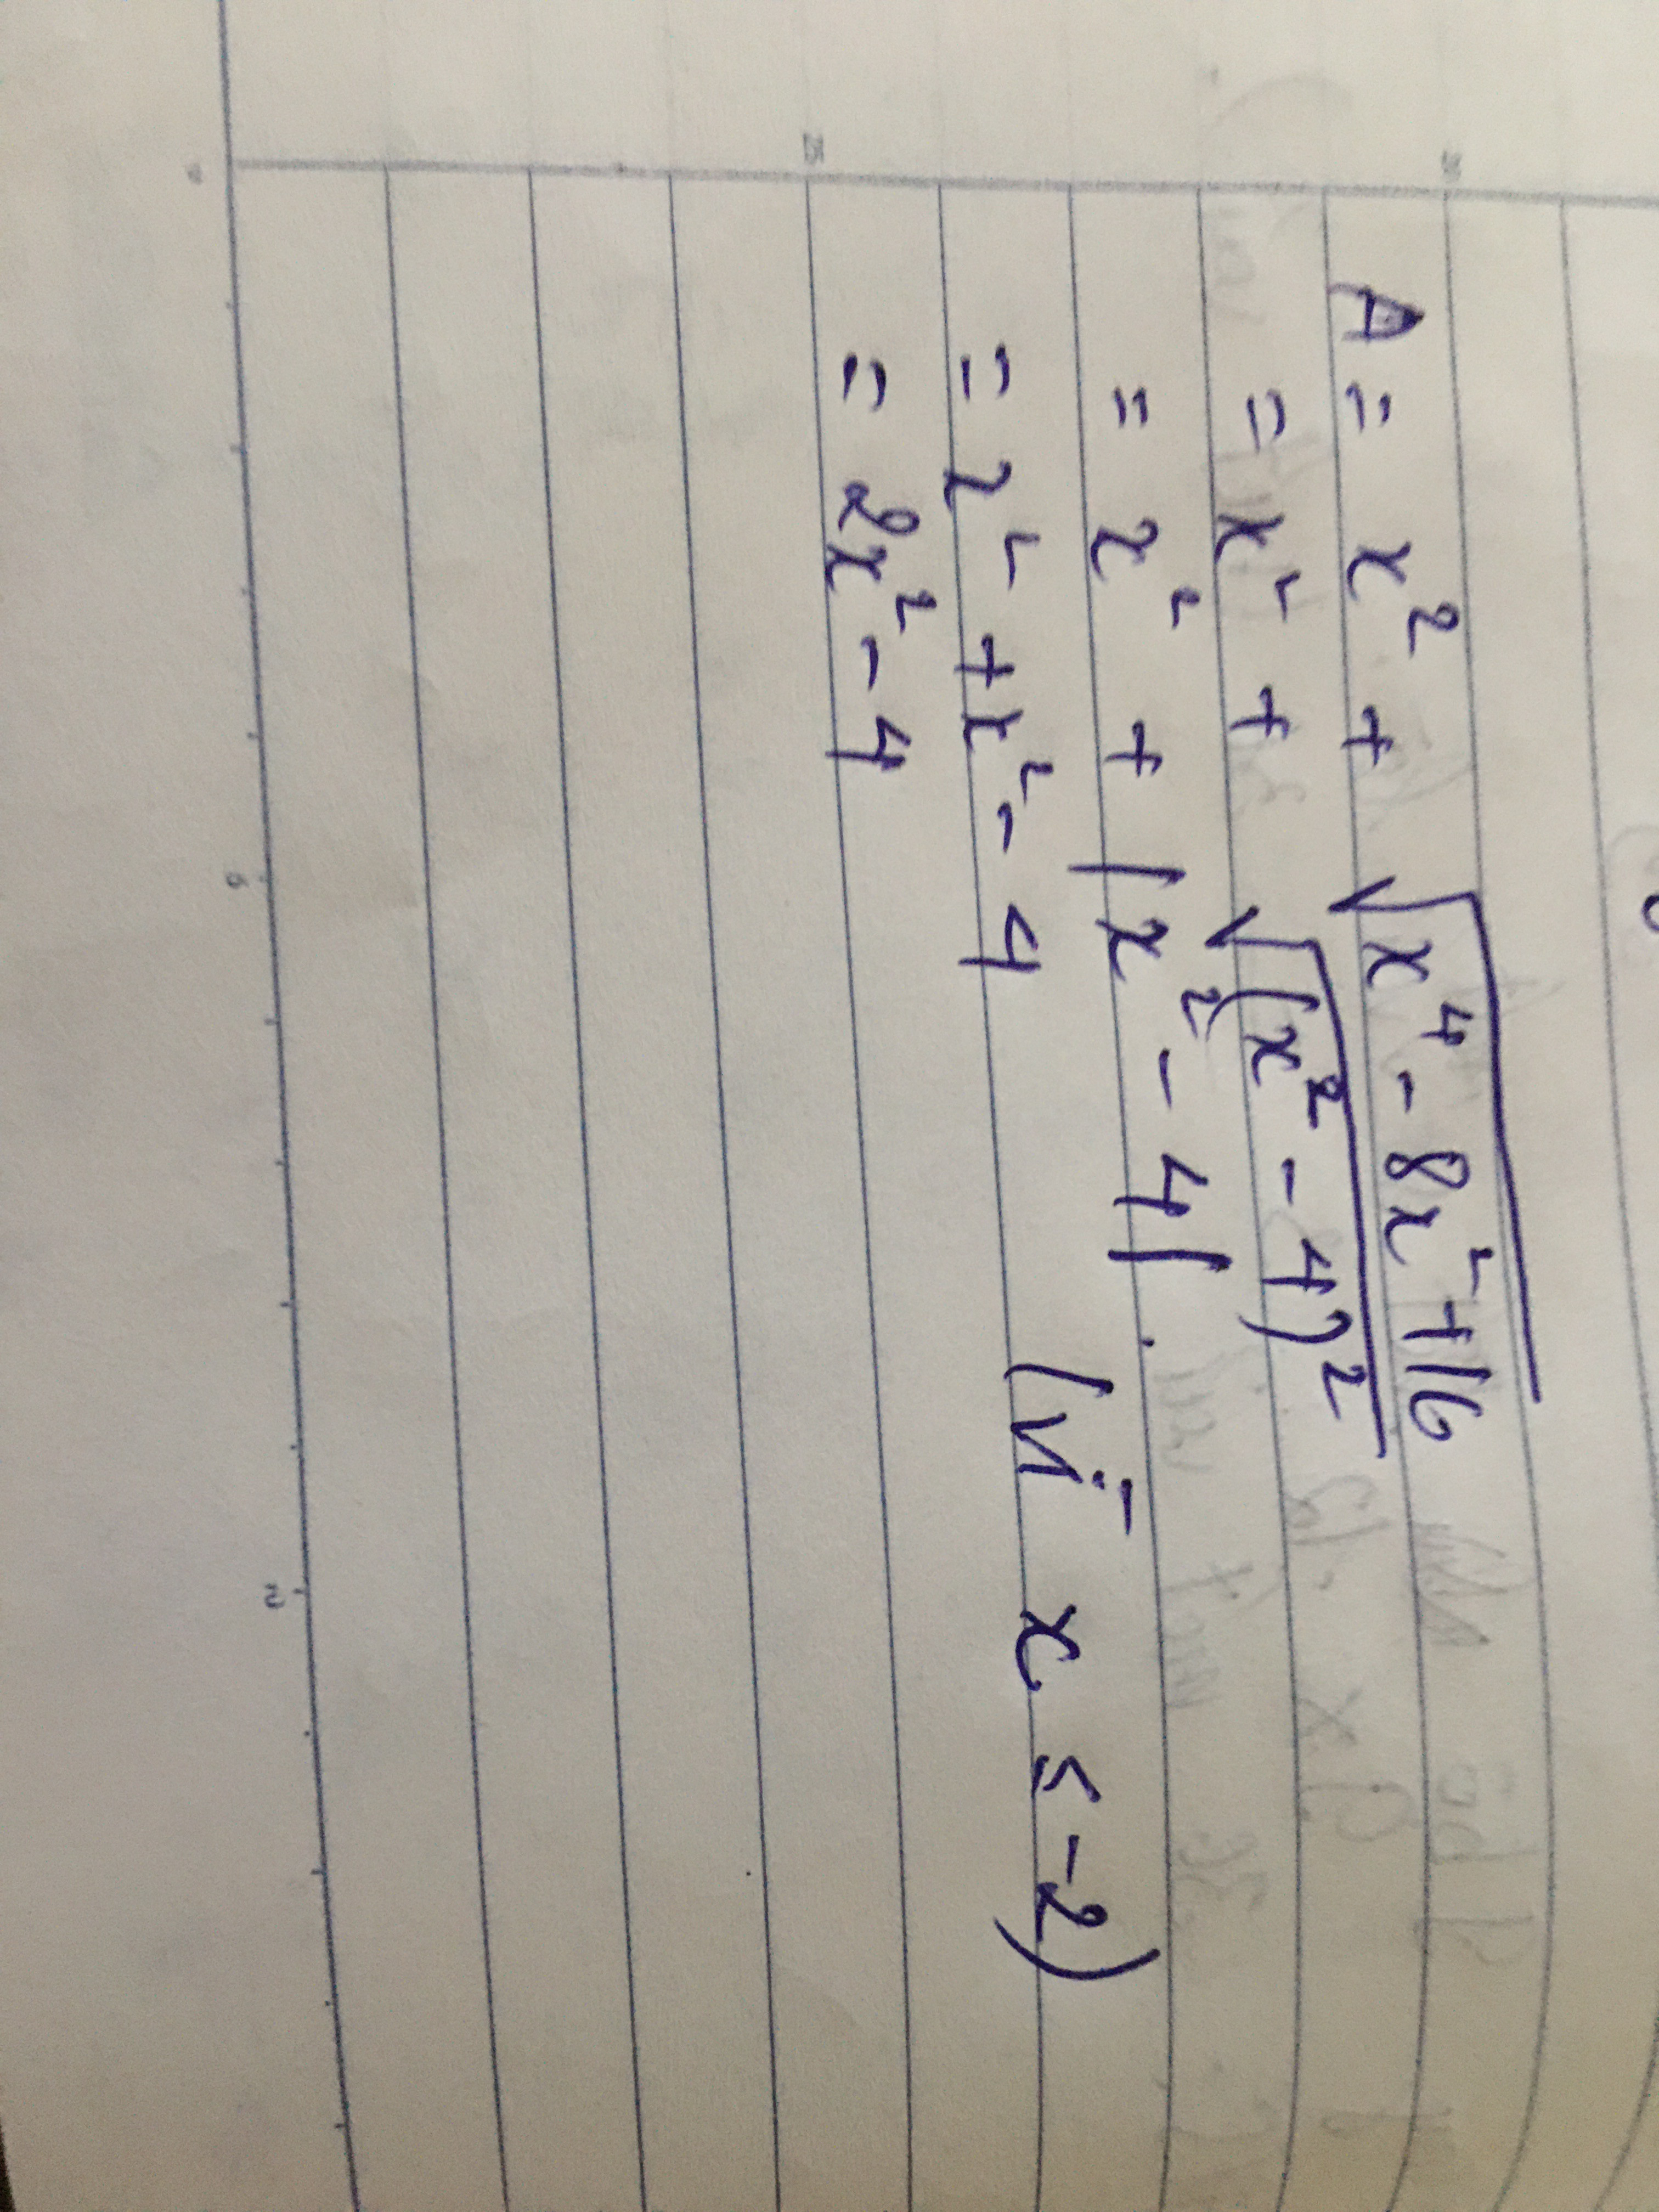 A = x² + √(x⁴ - 8x² + 16)
= x² + √((x² - 4)²)
= x² + |x² - 4|.
= x² + x² - 4 (vì x ≤ -2)
= 2x² - 4